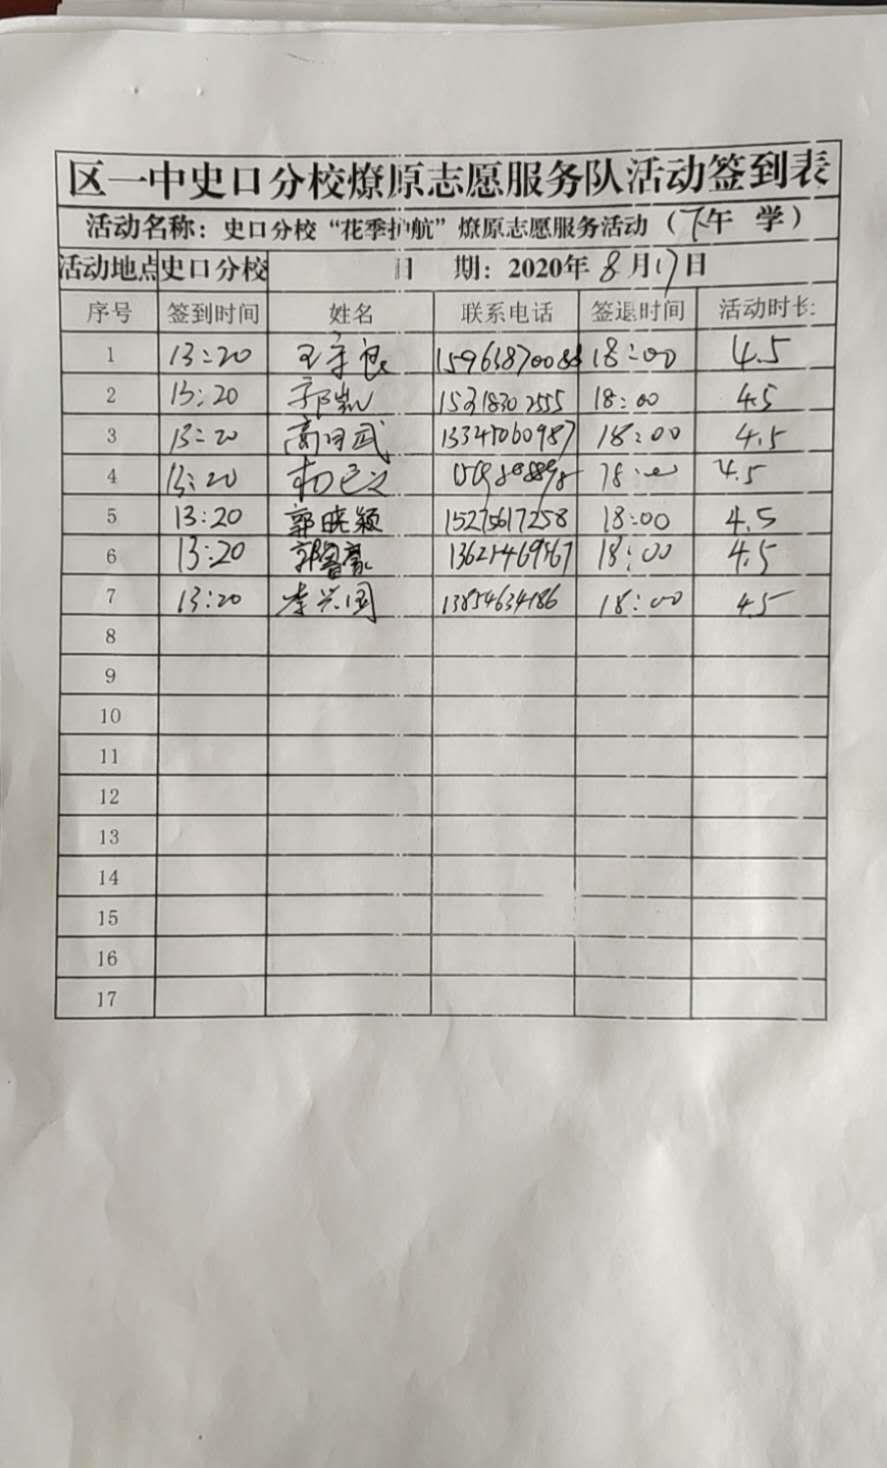 区一中史口分校燎原志愿服务队活动签到表
活动名称：史口分校“花季护航”燎原志愿服务活动（下午 学）
活动地点 史口分校 日 期：2020年8月17日
序号 签到时间 姓名 联系电话 签退时间 活动时长
1 13:20 15963870088 18:00 4.5
2 13:20 郭凯 15318302555 18:00 4.5
3 13:20 13345060987 18:00 4.5
4 13:20 18:00 4.5
5 13:20 郭晓颖 15275617258 18:00 4.5
6 13:20 18:00 4.5
7 13:20 李兴国 13854634186 18:00 4.5
8
9
10
11
12
13
14
15
16
17